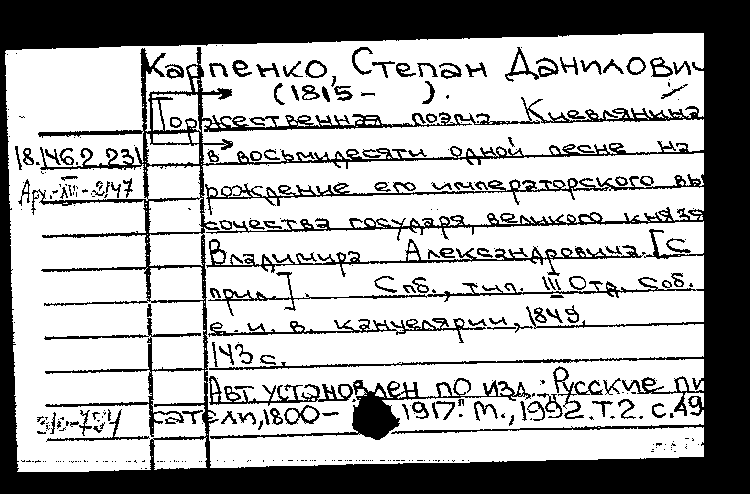 Карпенко, Степан Данилович
(1815 - ).
Торжественная поэма Киевлянина
18.146.2.231 в восьмидесяти одной песне на
Арх.-XIII-2/47 рождение его императорского вы
сочества государя, великого князя
Владимира Александровича. [С
прил.]. Спб., тип. III Отд. Соб.
е. и. в. канцелярии, 1845.
143 с.
Авт. установлен по изд.: Русские пи
сатели, 1800- 1917". М., 1992. Т. 2. с. 49